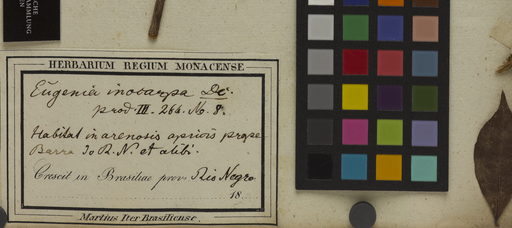 SCHE
SAMMLUNG
EN
HERBARIUM REGIUM MONACENSE.
Eugenia inocarpa Dc.
prod. III. 264. No. 8.
Habitat in arenosis apricis prope
Barra do R. N. et alibi.
Crescit in Brasiliae prov. Rio Negro
18
Martius Iter Brasiliense.